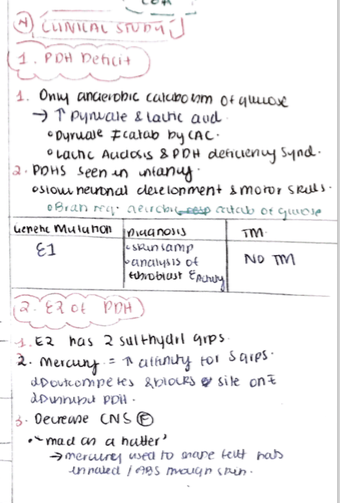 CLINICAL STUDY
1. PDH Deficit
1. Only anaerobic catabolism of glucose
→ ↑ Pyruvate & lactic acid.
• Pyruvate ≠ catab by CAC.
• Lactic Acidosis & PDH deficiency Synd.
2. PDHS seen in infancy.
• slow neuronal development & motor skills.
• Brain req. aerobic catab of glucose
Genetic Mutation | Diagnosis | TM
E1 | • skin samp | NO TM
• analysis of
fibroblast E Activity
2. E2 of PDH
1. E2 has 2 sulfhydryl grps.
2. Mercury = ↑ affinity for S grps.
↳ Outcompetes & blocks site on E
↳ inhibit PDH.
3. Decrease CNS F
• "mad as a hatter"
→ mercury used to make felt hats
inhaled / ABS through skin.